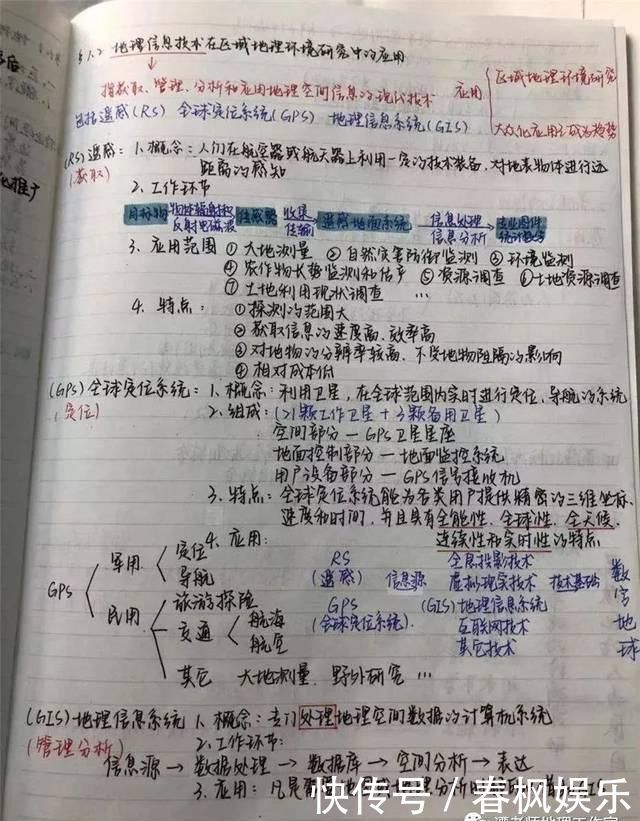 §1.2 地理信息技术在区域地理环境研究中的应用
指获取、管理、分析和应用地理空间信息的现代技术 应用
区域地理环境研究
大众化应用已成为趋势
包括遥感(RS) 全球定位系统(GPS) 地理信息系统(GIS)
(RS)遥感: 1. 概念: 人们在航空器或航天器上利用一定的技术装备, 对地表物体进行远
(获取)
距离的感知
2. 工作环节
目标物 反射电磁波 传感器 收集 传输 遥感地面系统 信息处理 信息分析 专业图件 统计数字
3. 应用范围 ①大地测量 ②自然灾害防御监测 ③环境监测
④农作物长势监测和估产 ⑤资源调查 ⑥土地资源调查
⑦土地利用现状调查 …
4. 特点: ①探测的范围大
②获取信息的速度高、效率高
③对地物的分辨率较高、不受地物阻隔的影响
④相对成本低
(GPS)全球定位系统: 1. 概念: 利用卫星, 在全球范围内实时进行定位、导航的系统
(定位)
2. 组成: (21颗工作卫星+3颗备用卫星)
空间部分—GPS卫星星座
地面控制部分—地面监控系统
用户设备部分—GPS信号接收机
3. 特点: 全球定位系统能为各类用户提供精密的三维坐标、
速度和时间, 并且具有全能性、全球性、全天候、
连续性和实时性的特点
4. 应用:
GPS
军用 定位 导航
民用 旅游探险
交通 航海 航空
其它 大地测量、野外研究 …
RS 全息投影技术
(遥感) 信息源 虚拟现实技术 技术基础
GPS (GIS)地理信息系统
(全球定位系统) 互联网技术
其它技术
数字地球
(GIS)地理信息系统 1. 概念: 专门处理地理空间数据的计算机系统
(管理分析) 2. 工作环节:
信息源→数据处理→数据库→空间分析→表达
3. 应用: 凡是
快传号/春枫娱乐